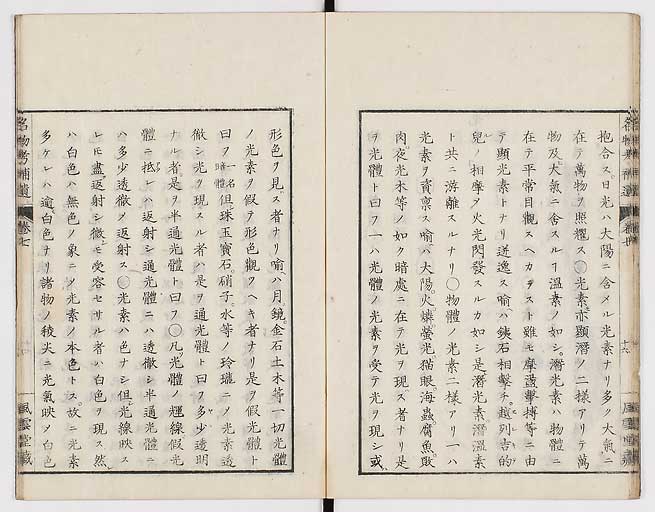 抱合ス。日光ハ大陽ニ含メル光素ナリ多ク大氣ニ
在テ萬物ヲ照耀ス○光素亦顯潛ノ二様アリテ萬
物及ビ大氣ニ含スルヿ温素ノ如シ。潛光素ハ物體ニ
在テ平常目觀スヘカラスト雖モ摩盪擊搏等ニ由
テ顯光素トナリ迸逸ス喩ハ鋏石相擊チ。越列吉的
兒ノ相摩メ火光閃發スルカ如シ是潛光素潛温素
ト共ニ游離スルナリ○物體ノ光素二様アリ一ハ
光素ヲ資禀ス喩ハ大陽火燐。螢光猫眼。海蟲。腐魚敗
肉。夜光木等ノ如ク暗處ニ在テ光ヲ現ス者ナリ是
ヲ光體ト曰フ一ハ光體ノ光素ヲ受テ光ヲ現シ或
十六
風雲堂藏
形色ヲ見ス者ナリ喩ハ月鏡金石土木等一切光體
ノ光素ヲ假テ形色觀ツヘキ者ナリ是ヲ假光體ト
曰フ一名暗體但珠玉寶石。硝子。水等ノ玲瓏ニノ光素透
徹シ光ヲ現スル者ハ是ヲ通光體ト曰フ多少透明
ナル者是ヲ半通光體ト曰フ○凡光體ノ輝線假光
體ニ抵レハ返射シ通光體ニハ透徹シ半通光體ニ
ハ多少透徹メ返射ス○光素ハ色ナシ但光線映ス
レモ盡返射シ微モ受容セサル者ハ白色ヲ現ス然
ハ白色ハ無色ノ象ニメ光素ノ本色トス。故ニ光素
多ケレハ適白色ナリ諸物ノ稜尖ニ光氣映メ白色
名物考補遺
卷七
風雲堂藏